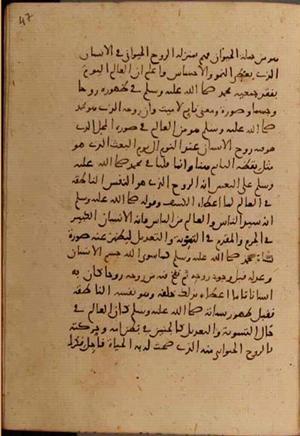 ٤٧
من جملة الحيوان فهم بمنزلة الروح الحيواني في الانسان
الذي يعطي النمو والاحساس واعلم ان العالم اليوم
بفقد جمعية محمد صلى الله عليه وسلم في ظهوره روحا
وجسما وصورة ومعنى نايم لا ميت وان روحه الذي هو محمد
صلى الله عليه وسلم هو من العالم في صورة المحل الذي
هو فيه روح الانسان عند النوم الى يوم البعث الذي هو
مثل يقظة النايم هنا وانما قلنا في محمد صلى الله عليه
وسلم على التعيين انه الروح الذي هو النفس الناطقة
في العالم لما اعطاه الكشف وقوله صلى الله عليه وسلم
انه سيد الناس والعالم من الناس فانه الانسان الكبير
في الجرم والمقدم في التسوية والتعديل ليظهر عنه صورة
نشاة محمد صلى الله عليه وسلم كما سوى الله جسم الانسان
وعدله قبل وجود روحه ثم نفخ فيه من روحه روحا كان به
انسانا تاما اعطاه بذلك خلقه وهو نفسه الناطقة
فقبل ظهور نشاته صلى الله عليه وسلم كان العالم في
حال التسوية والتعديل كالجنين في بطن امه وحركته
بالروح الحيواني منه الذي صحت له به الحياة فاجل فكرك